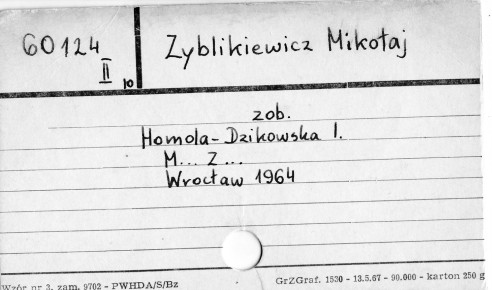 60124 Zyblikiewicz Mikołaj
II
10
zob.
Homola-Dzikowska I.
M... Z...
Wrocław 1964
Wzór nr 3, zam. 9702 - PWHDA/S/Bz GrZGraf. 1530 - 13.5.67 - 90.000 - karton 250 g